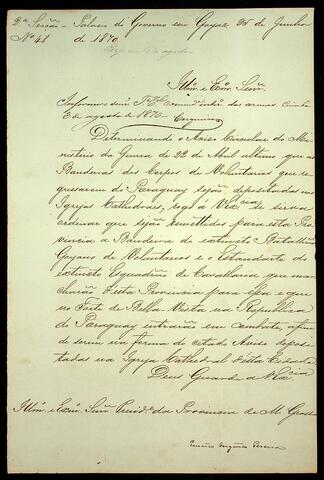 2ª Secção - Palacio do Governo em Goyaz 25 de Junho
Nº 41 de 1870.
Illmº e Exmº Senr.
Informe o Senr commandante das armas. Cuiabá
3 de agosto de 1870
Determinando o Aviso Circular do Mi-
nisterio da Guerra de 22 de Abril ultimo que as
Bandeiras dos Corpos de Voluntarios que re-
gressarem do Paraguay sejão depositadas nas
Igrejas Cathedraes, rogo á V.Excia se sirva
ordenar que sejão remettidos para esta Pro-
vincia a Bandeira do extincto Batalhão
Goyano de Voluntarios e o Estandarte do
extincto Esquadrão de Cavallaria que mar-
charão d'esta Provincia para essa e que
no Forte de Bella Vista na Republica
do Paraguay entrarão em combate, afim
de serem na forma do citado Aviso deposi-
tadas na Igreja Cathedral d'esta Cidade
Deus Guarde a V.Excia
Illmº e Exmº Senr Presidte da Provincia de M Grosso